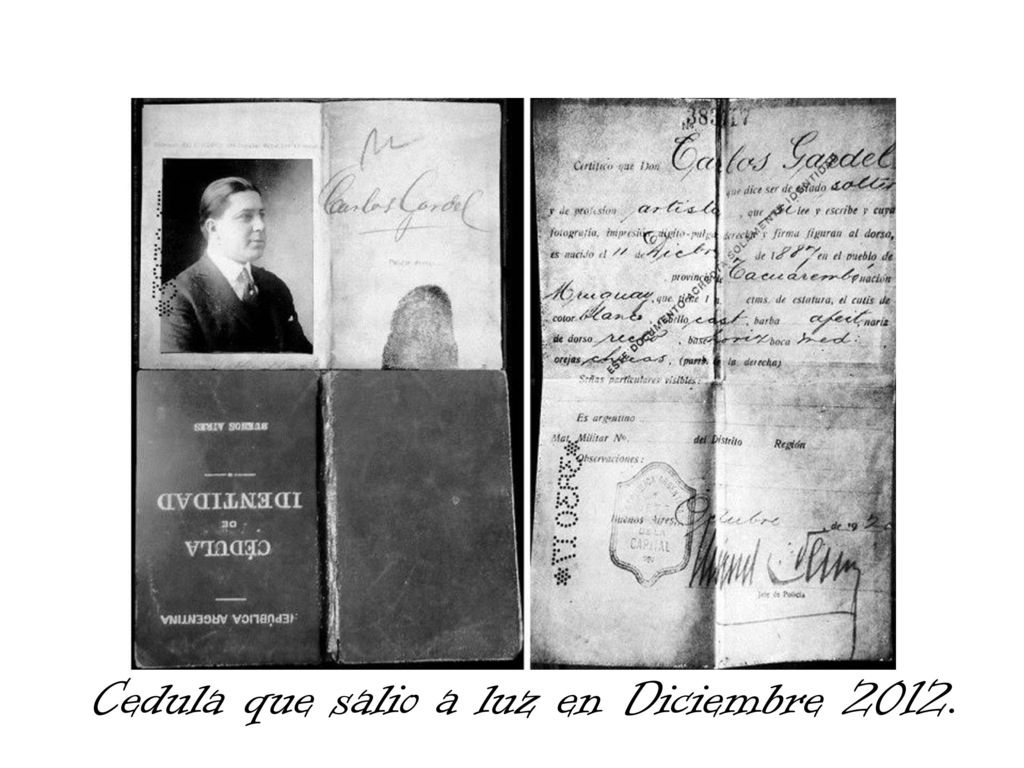 Carlos Gardel
BUENOS AIRES
IDENTIDAD
DE
CÉDULA
REPÚBLICA ARGENTINA
Nº
Certifico que Don Carlos Gardel
que dice ser de estado solter
y de profesión artista, que si lee y escribe y cuya
fotografía, impresión dígito-pulgar derecha y firma figuran al dorso,
es nacido el 11 de Dicbre de 1887 en el pueblo de
provincia de Tacuarembó nación
Uruguay, que tiene 1 m ctms. de estatura, el cutis de
color blanco, cabello cast, barba afeit, nariz
de dorso rec, base horiz boca med.
orejas chicas, (partb. de la derecha)
ESTE DOCUMENTO ACREDITA SOLAMENTE IDENTIDAD
Señas particulares visibles:
Es argentino
Mat. Militar Nº. del Distrito Región
Observaciones:
Buenos Aires, Octubre de 192
DE LA
CAPITAL
Jefe de Policía
Cedula que salio a luz en Diciembre 2012.